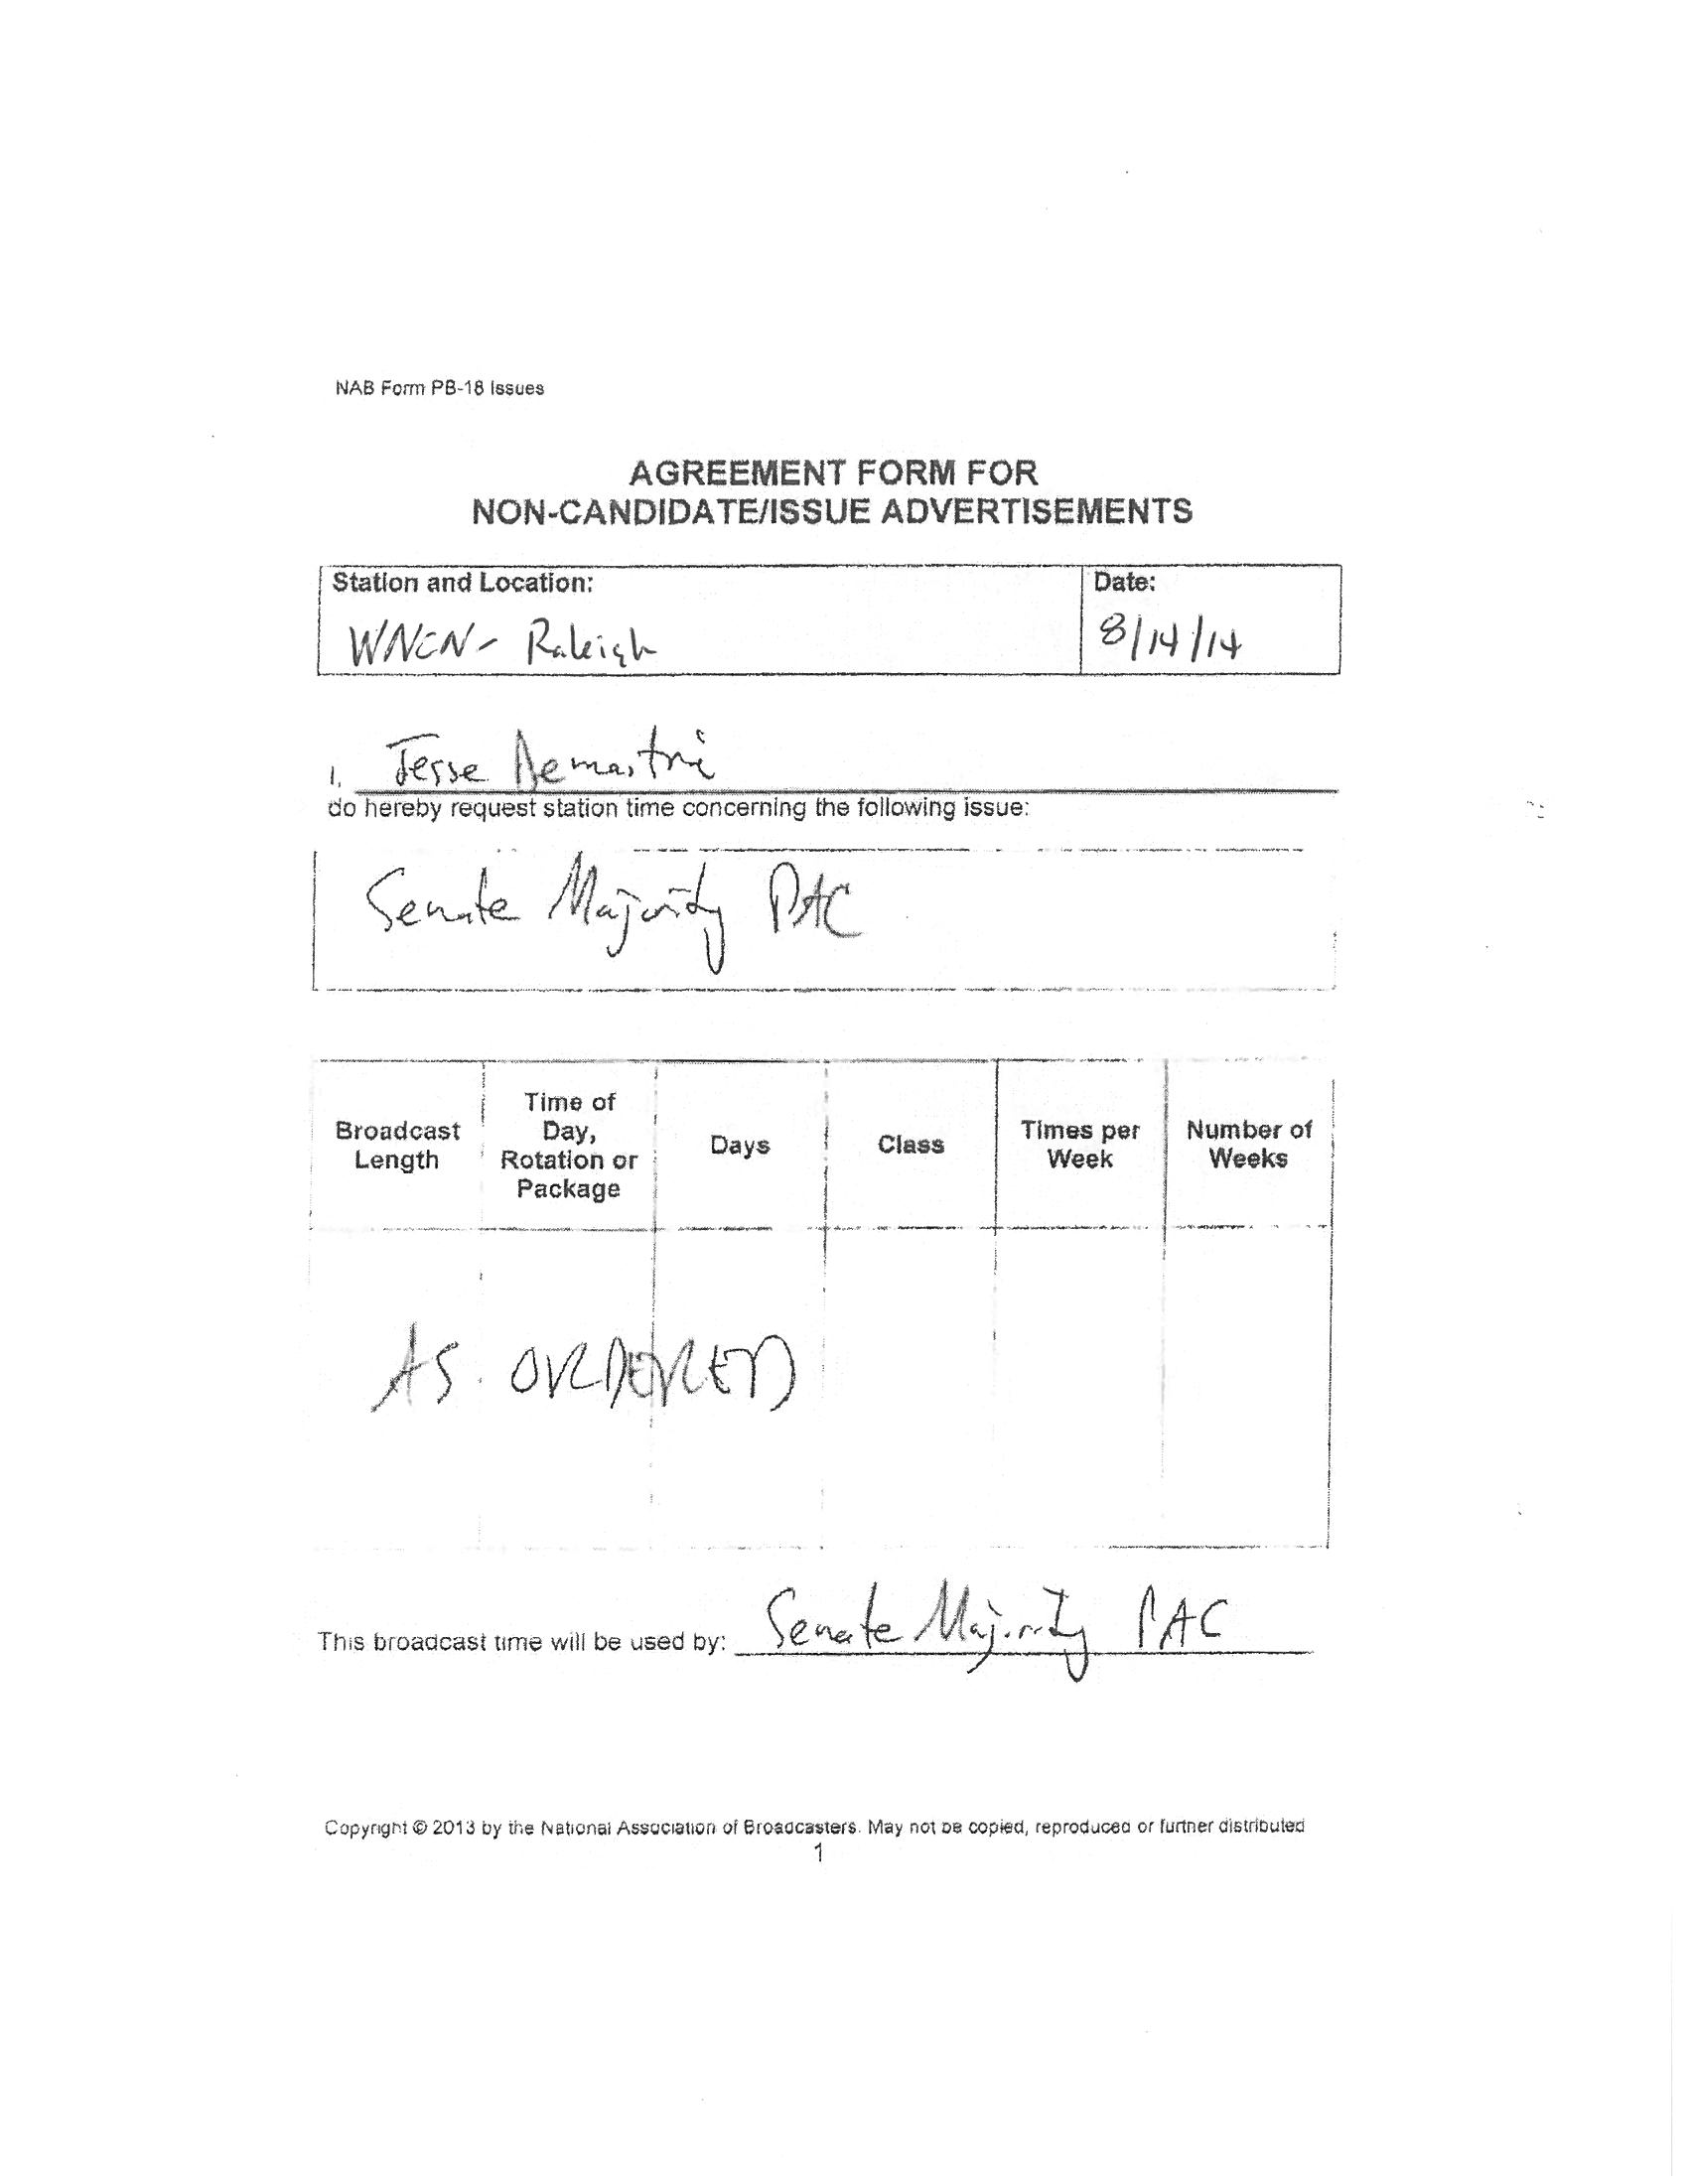 NAB Form PB-18 Issues
AGREEMENT FORM FOR
NON-CANDIDATE/ISSUE ADVERTISEMENTS
Station and Location:
Date:
WNCN - Raleigh
8/14/14
I, Jesse Demastrie
do hereby request station time concerning the following issue:
Senate Majority PAC
Broadcast Length
Time of Day, Rotation or Package
Days
Class
Times per Week
Number of Weeks
AS ORDERED
This broadcast time will be used by: Senate Majority PAC
Copyright © 2013 by the National Association of Broadcasters. May not be copied, reproduced or further distributed
1